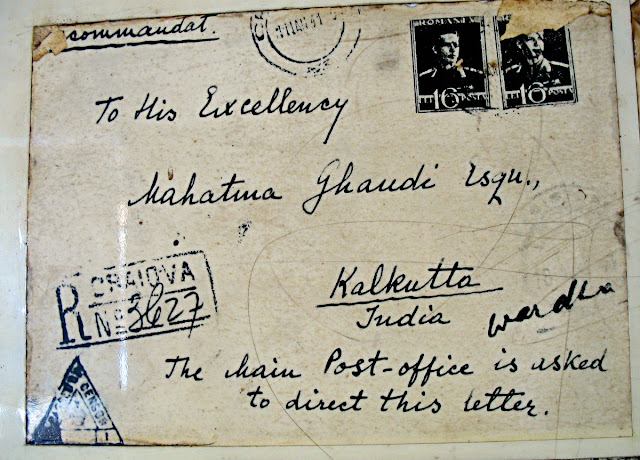 commandat.
ROMANIA
16 LEI POSTA
16 LEI POSTA
To His Excellency
Mahatma Ghandi Esqu.,
Kalkutta
India
wardha
R CRAIOVA
No 3627
CENSOR
The Main Post-office is asked
to direct this letter.